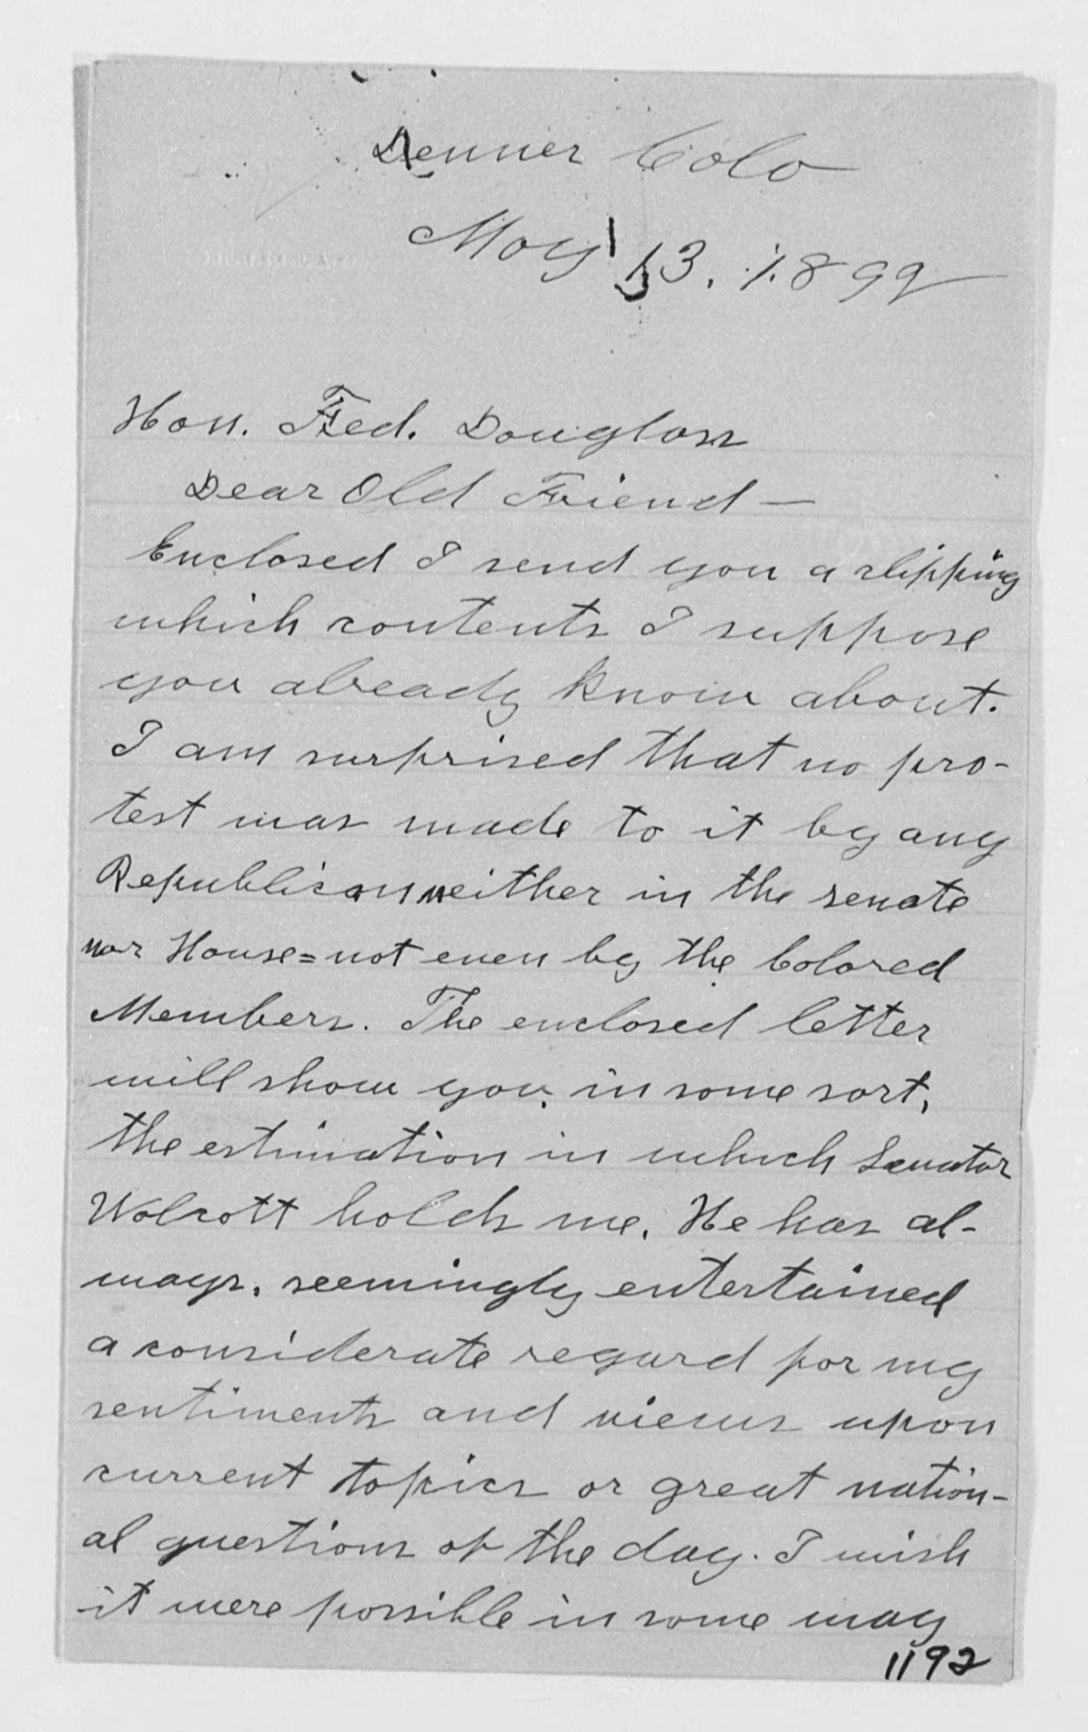 Denver Colo
May 13, 1892
Hon. Fred. Douglass
Dear Old Friend —
Enclosed I send you a slipping
which contents I suppose
you already know about.
I am surprised that no pro-
test was made to it by any
Republican neither in the senate
nor House = not even by the Colored
Members. The enclosed letter
will show you, in some sort,
the estimation in which Senator
Wolcott holds me. He has al-
ways, seemingly entertained
a considerate regard for my
sentiments and views upon
current topics or great nation-
al questions of the day. I wish
it were possible in some way
1192